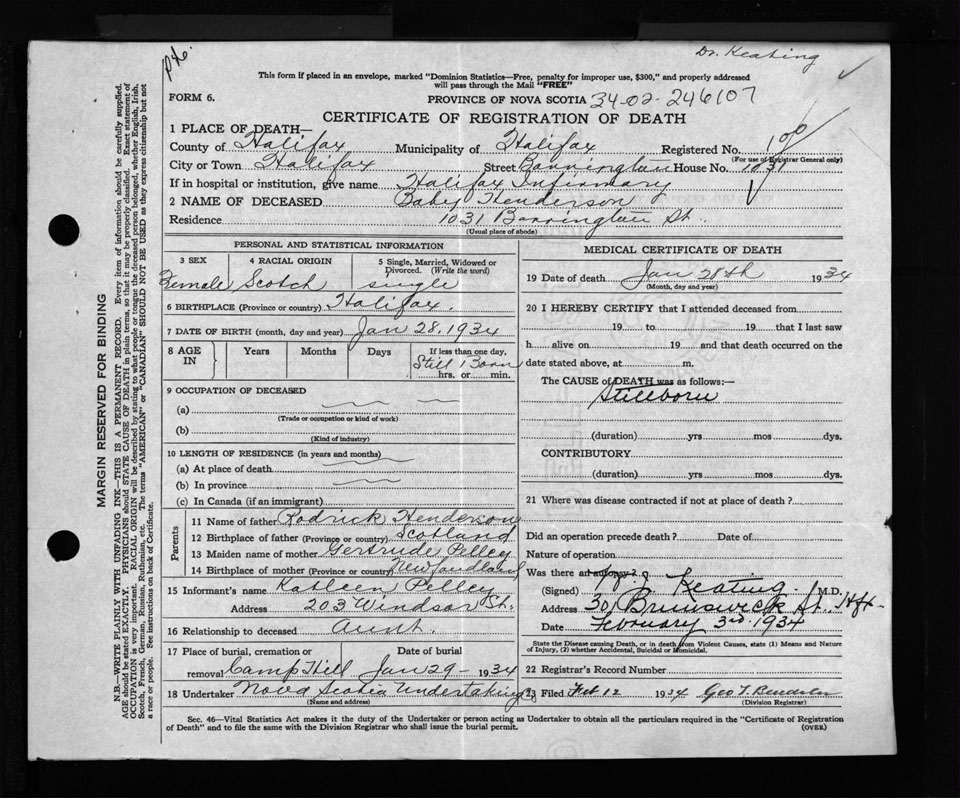 Dr. Keating
This form if placed in an envelope, marked "Dominion Statistics—Free, penalty for improper use, $300," and properly addressed
will pass through the Mail "FREE"
FORM 6.
PROVINCE OF NOVA SCOTIA 34-02-246107
CERTIFICATE OF REGISTRATION OF DEATH
1 PLACE OF DEATH—
County of Halifax Municipality of Halifax Registered No.
(For use of Registrar General only)
City or Town Halifax Street Barrington House No. 1031
If in hospital or institution, give name Halifax Infirmary
2 NAME OF DECEASED Baby Henderson
Residence 1031 Barrington St.
(Usual place of abode)
PERSONAL AND STATISTICAL INFORMATION
3 SEX 4 RACIAL ORIGIN 5 Single, Married, Widowed or
Divorced. (Write the word)
Female Scotch single
6 BIRTHPLACE (Province or country) Halifax.
7 DATE OF BIRTH (month, day and year) Jan 28, 1934
8 AGE IN Years Months Days If less than one day,
Still Born
hrs. or min.
9 OCCUPATION OF DECEASED
(a)
(Trade or occupation or kind of work)
(b)
(Kind of industry)
10 LENGTH OF RESIDENCE (in years and months)
(a) At place of death
(b) In province
(c) In Canada (if an immigrant)
Parents
11 Name of father Rodrick Henderson
12 Birthplace of father (Province or country) Scotland
13 Maiden name of mother Gertrude Pelley
14 Birthplace of mother (Province or country) Newfoundland
15 Informant's name Katleen Pelley
Address 203 Windsor St.
16 Relationship to deceased Aunt.
17 Place of burial, cremation or Date of burial
removal Camp Hill Jan 29- 1934
18 Undertaker Nova Scotia Undertaking
(Name and address)
MEDICAL CERTIFICATE OF DEATH
19 Date of death Jan 28th 1934
(Month, day and year)
20 I HEREBY CERTIFY that I attended deceased from
19 to 19 that I last saw
h alive on 19 and that death occurred on the
date stated above, at m.
The CAUSE of DEATH was as follows:—
Stillborn
(duration) yrs mos dys.
CONTRIBUTORY
(duration) yrs mos dys.
21 Where was disease contracted if not at place of death?
Did an operation precede death? Date of
Nature of operation
Was there an autopsy?
(Signed) Keating M.D.
Address 301 Brunswick St. Hfx
Date February 3rd 1934
State the Disease causing Death, or in death from Violent Causes, state (1) Means and Nature
of Injury, (2) whether Accidental, Suicidal or Homicidal.
22 Registrar's Record Number
23 Filed Feb 12 1934 Geo T.
(Division Registrar)
Sec. 46—Vital Statistics Act makes it the duty of the Undertaker or person acting as Undertaker to obtain all the particulars required in the "Certificate of Registration
of Death" and to file the same with the Division Registrar who shall issue the burial permit. (OVER)
MARGIN RESERVED FOR BINDING
N.B.—WRITE PLAINLY WITH UNFADING INK—THIS IS A PERMANENT RECORD. Every item of information should be carefully supplied.
AGE should be stated EXACTLY. PHYSICIANS should STATE CAUSE OF DEATH in plain terms, so that it may be properly classified. Exact statement of
OCCUPATION is very important. RACIAL ORIGIN will be described by stating to what people or tongue the deceased person belonged, whether English, Irish,
Scotch, French, German, Russian, Ruthenian, etc. The terms "AMERICAN" or "CANADIAN" SHOULD NOT BE USED as they express citizenship but not
a race or people. See instructions on back of Certificate.